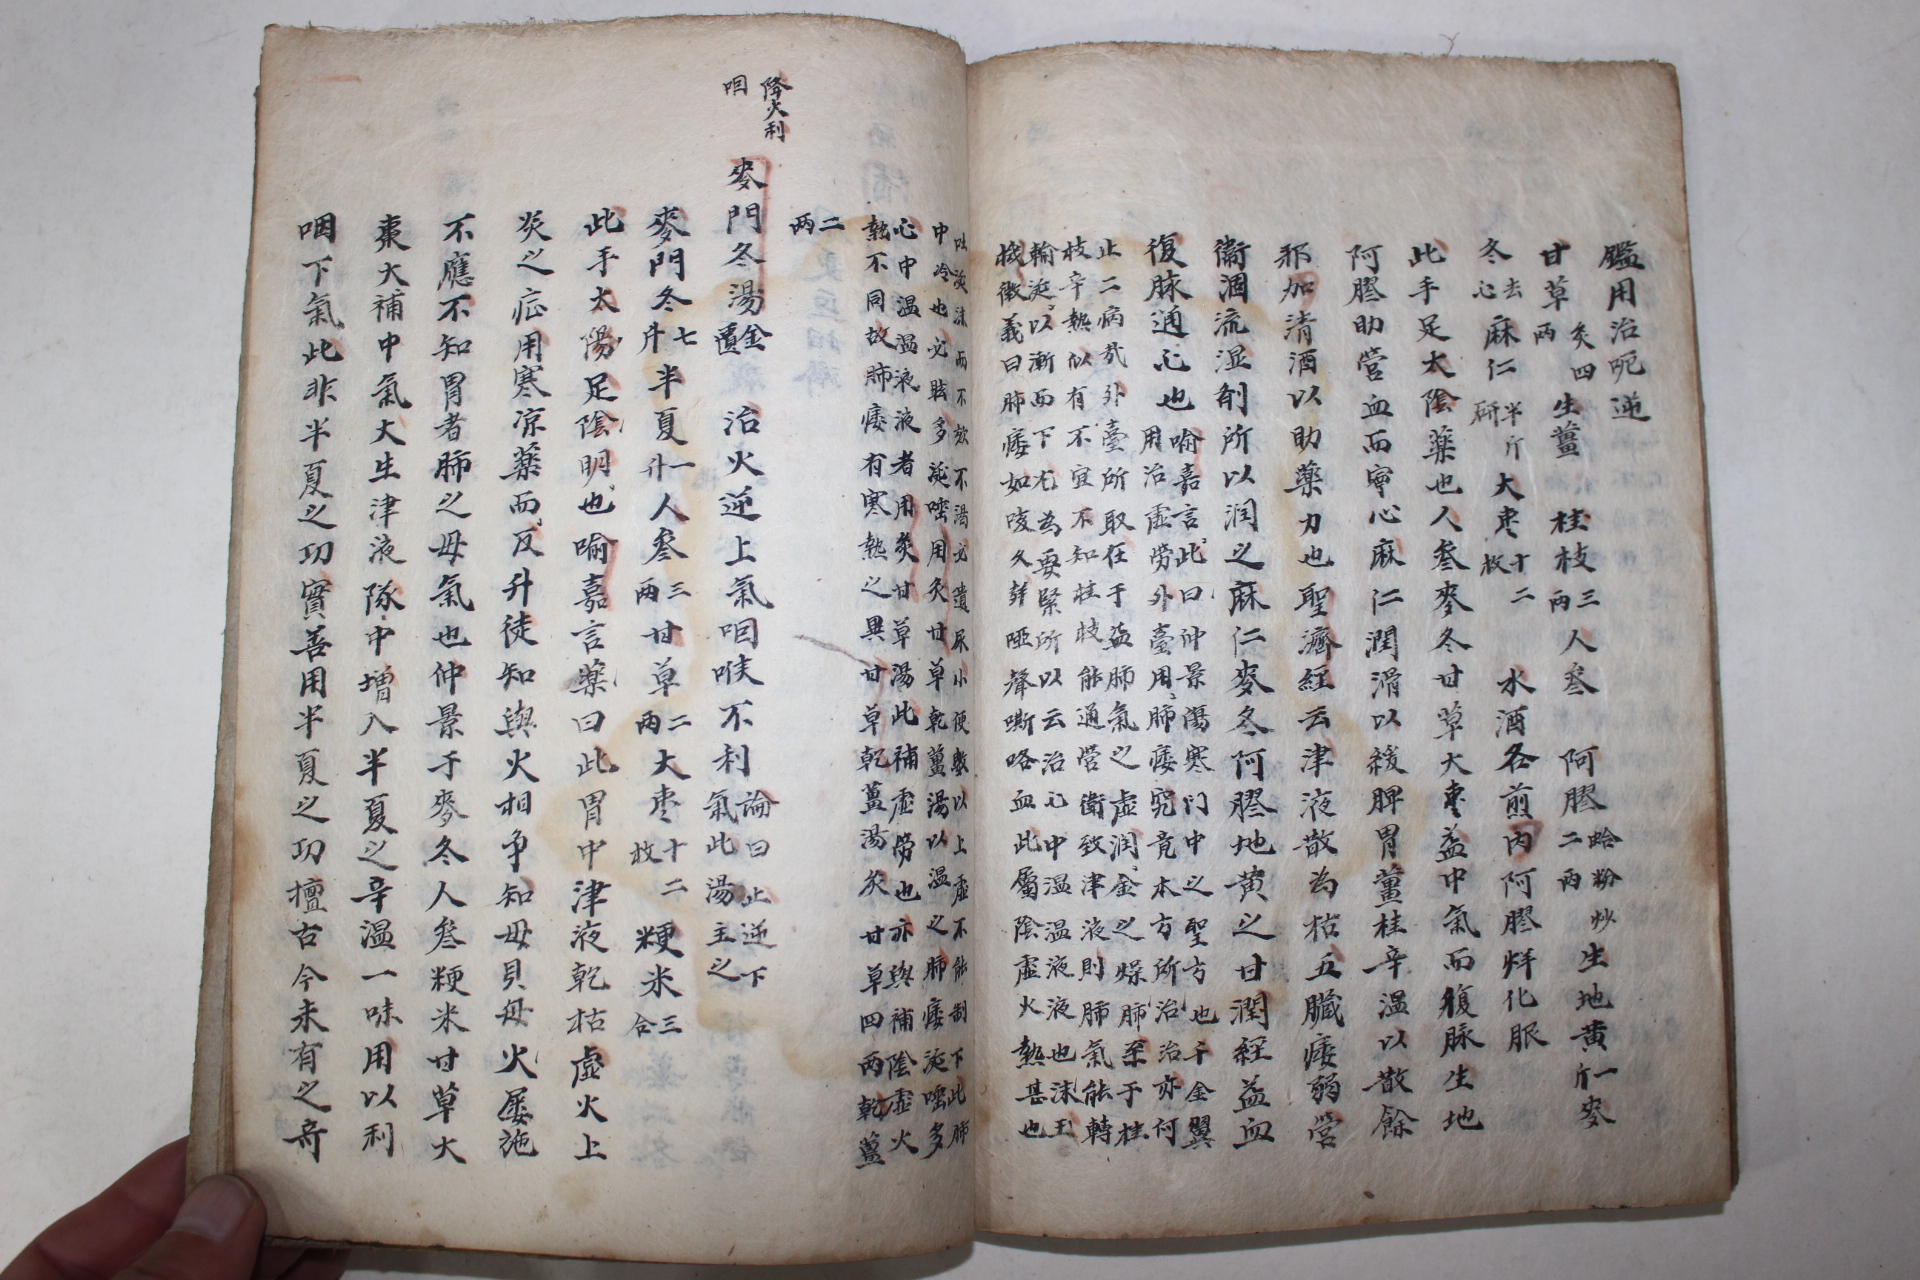 鑑用治呃逆
甘草炙四兩生薑桂枝三兩人叄阿膠蛤粉炒二兩生地黄一斤麥
冬去心麻仁半斤研大枣十二枚水酒各煎内阿膠烊化服
此手足太陰藥也人叄麥冬甘草大枣益中氣而復脉生地
阿膠助营血而寧心麻仁潤滑以緩脾胃薑桂辛温以散餘
邪加清酒以助藥力也聖濟經云津液散為枯五臟痿弱营
衞涸流湿剤所以润之麻仁麥冬阿膠地黄之甘潤經益血
復脉通心也
喻嘉言此曰仲景傷寒门中之聖方也千金翼
用治虚劳外臺用肺痿究竟本方所治治亦何
止二病哉外臺所取在于益肺氣之虚润金之燥肺至于桂
枝辛熱似有不宜不知桂枝能通营衞致津液則肺氣能轉
輪涎以漸而下尤為要緊所以云治心中温温液液也沫玉
机微義曰肺痿如咳久声哑聲嘶咯血此屬陰虚火熱甚也
吐涎沫而不欬不渴必遺尿小便數以上虚不能制下此肺
中冷也必眩多涎唾用炙甘草乾薑湯以温之肺痿涎唾多
心中温温液液者用炙甘草湯此補虚劳也亦與補陰虚火
熱不同故肺痿有寒熱之異甘草乾薑湯炙甘草四兩乾薑
二兩
降火利
咽
麥門冬湯金匱治火逆上氣咽喉不利論曰止逆下氣此湯主之
麥門冬七升半夏一升人叄三兩甘草二兩大枣十二枚粳米三合
此手太陽足陰明也喻嘉言藥曰此胃中津液乾枯虚火上
炎之症用寒凉藥而反升徒知與火相争知母貝母火屡施
不應不知胃者肺之母氣也仲景于麥冬人叄粳米甘草大
棗大補中氣大生津液隊中增入半夏之辛温一味用以利
咽下氣此非半夏之功實善用半夏之功擅古今未有之奇